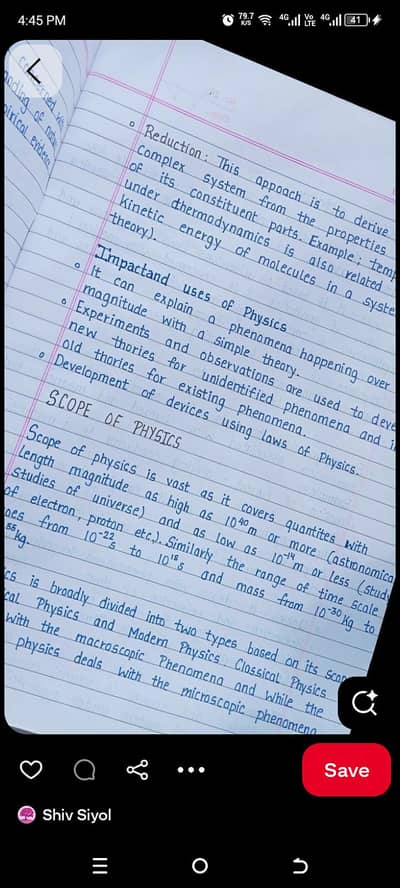 4:45 PM
79.7 K/S 4G Vo LTE 4G 41
Reduction: This appoach is to derive
Complex system from the properties
of its constituent parts. Example; temp
under dhermodynamics is also related
Kinetic energy of molecules in a syste
theory).
Impactand uses of Physics
It can explain a phenomena happening over
magnitude with a simple theory.
Experiments and observations are used to deve
new thories for unidentified phenomena and i
old thories for existing phenomena.
Development of devices using laws of Physics.
SCOPE OF PHYSICS
Scope of physics is vast as it covers quantites with
length magnitude as high as 10⁴⁰m or more (astronomica
studies of universe) and as low as 10⁻¹⁴m or less (stud
of electron, proton etc.). Similarly the range of time scale
oes from 10⁻²²s to 10¹⁸s and mass from 10⁻³⁰kg to
⁵⁵kg.
cs is broadly divided into two types based on its scop
cal Physics and Modern Physics. Classical Physics
with the macroscopic Phenomena and while the
physics deals with the microscopic phenomena
Save
Shiv Siyol